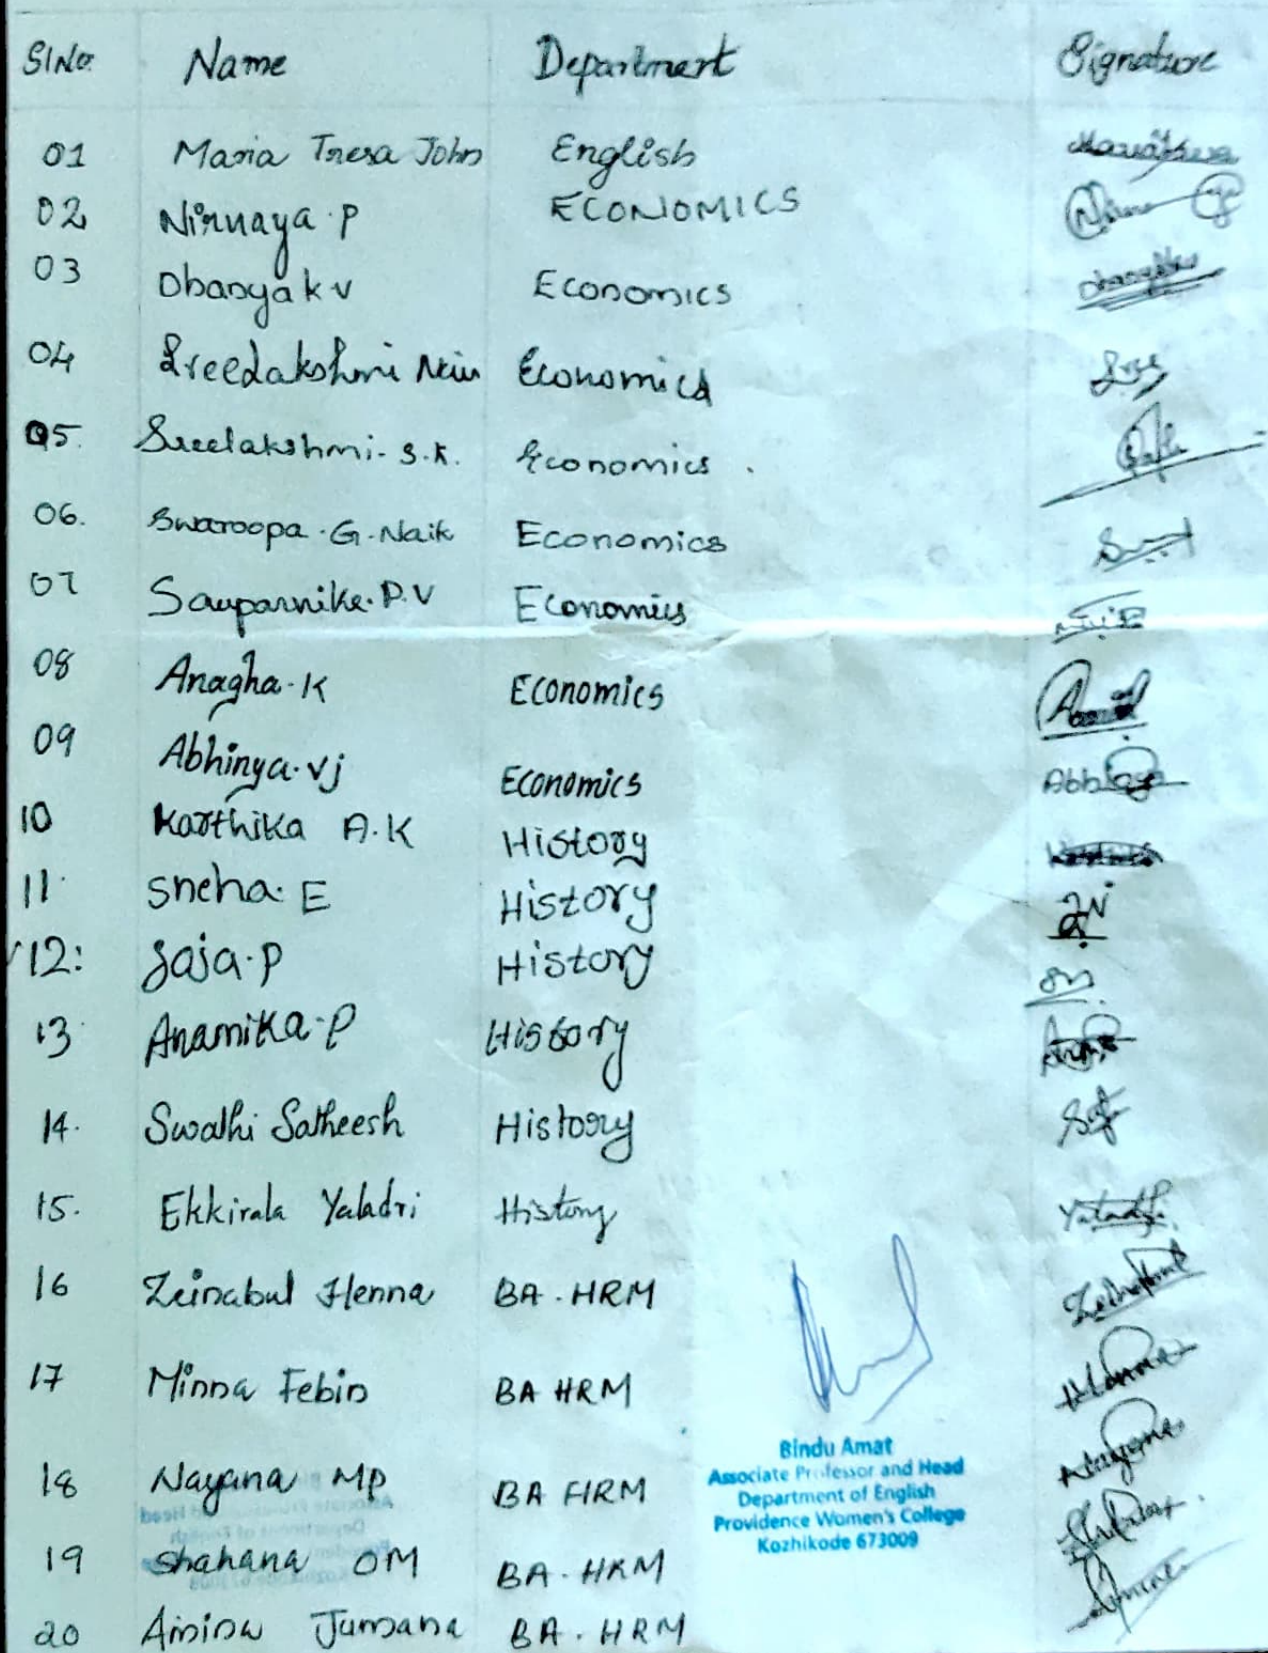 Sl No. Name Department Signature
01 Maria Tresa John English
02 Nirnaya . P ECONOMICS
03 Dhanya k v Economics Dhanyakv
04 Sreelakshmi Economics Sree
05. Sreelakshmi - S.K. Economics .
06. Swaroopa . G . Naik Economics
07 Sauparnika . P. V Economics
08 Anagha . K Economics
09 Abhinya . vj Economics Abhinya
10 Karthika A.K History
11 Sneha . E History
12: Jaja . P History
13 Anamika . P History
14. Swathi Satheesh History
15. Ekkirala Yaladri History Yaladri
16 Zeinabul Henna BA . HRM
17 Minna Febin BA HRM
18 Nayana MP BA HRM Nayana
19 Shahana OM BA . HRM
20 Amina Jumana BA . HRM
Bindu Amat
Associate Professor and Head
Department of English
Providence Women's College
Kozhikode 673009